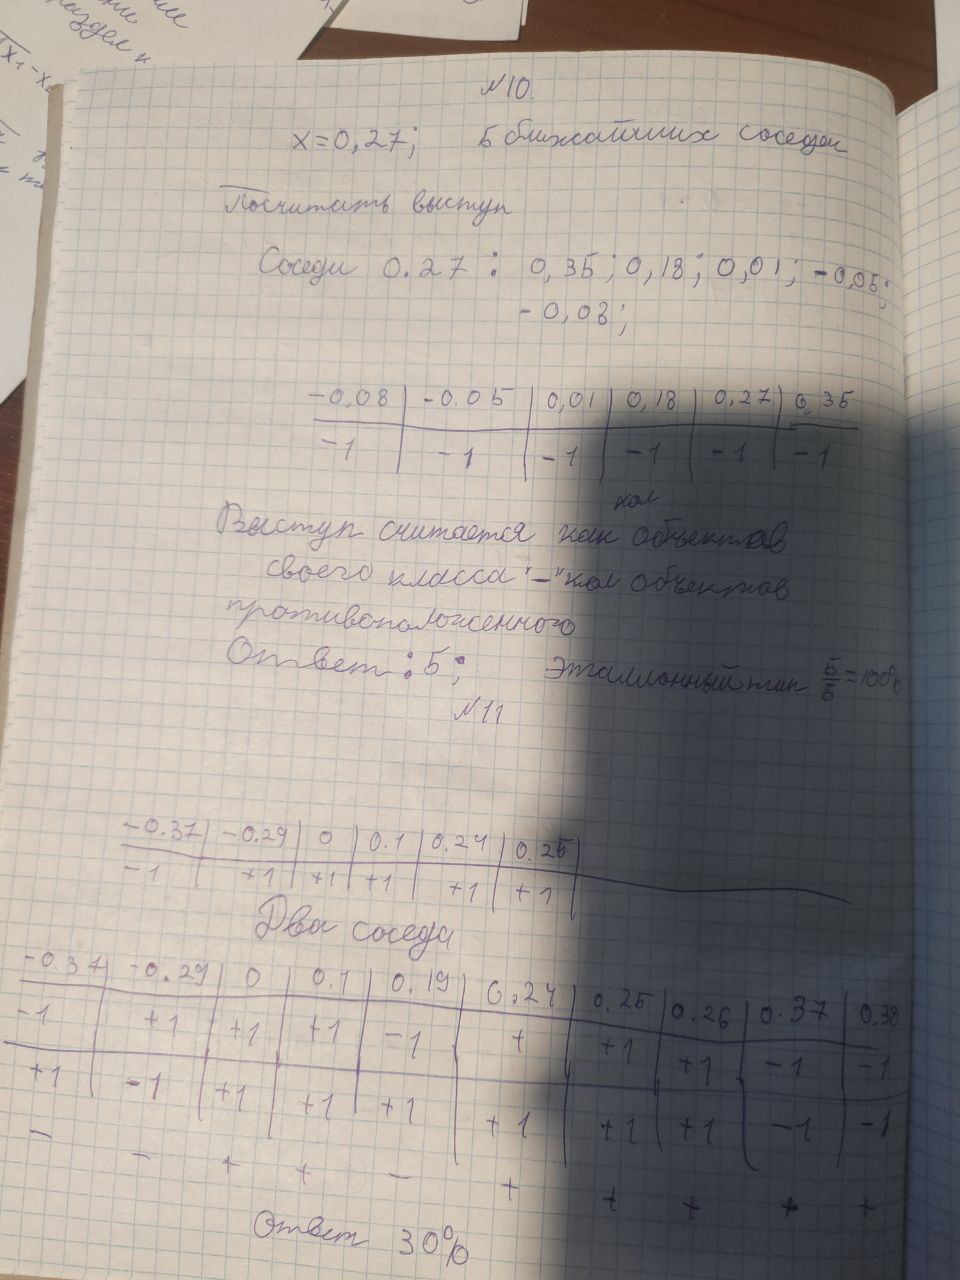 раздел к
√x₁-x₂
№10.
x=0,27; 5 ближайших соседей
Посчитать выступ
Соседи 0.27 : 0,35; 0,18; 0,01; -0,05;
-0,08;
-0,08 | -0.05 | 0,01 | 0,18 | 0,27 | 0,35
-1 | -1 | -1 | -1 | -1 | -1
кол
Выступ считается как объектов
своего класса "-" кол объектов
противоположенного
Ответ : 5; Эталлонный тип 5/5=100%
№11
-0.37 | -0.29 | 0 | 0.1 | 0.24 | 0.25
-1 | +1 | +1 | +1 | +1 | +1
Два соседа
-0.37 | -0.29 | 0 | 0.1 | 0.19 | 0.24 | 0.25 | 0.26 | 0.37 | 0,38
-1 | +1 | +1 | +1 | -1 | + | +1 | +1 | -1 | -1
+1 | -1 | +1 | +1 | +1 | +1 | +1 | +1 | -1 | -1
- - + + - + + + + +
Ответ 30%